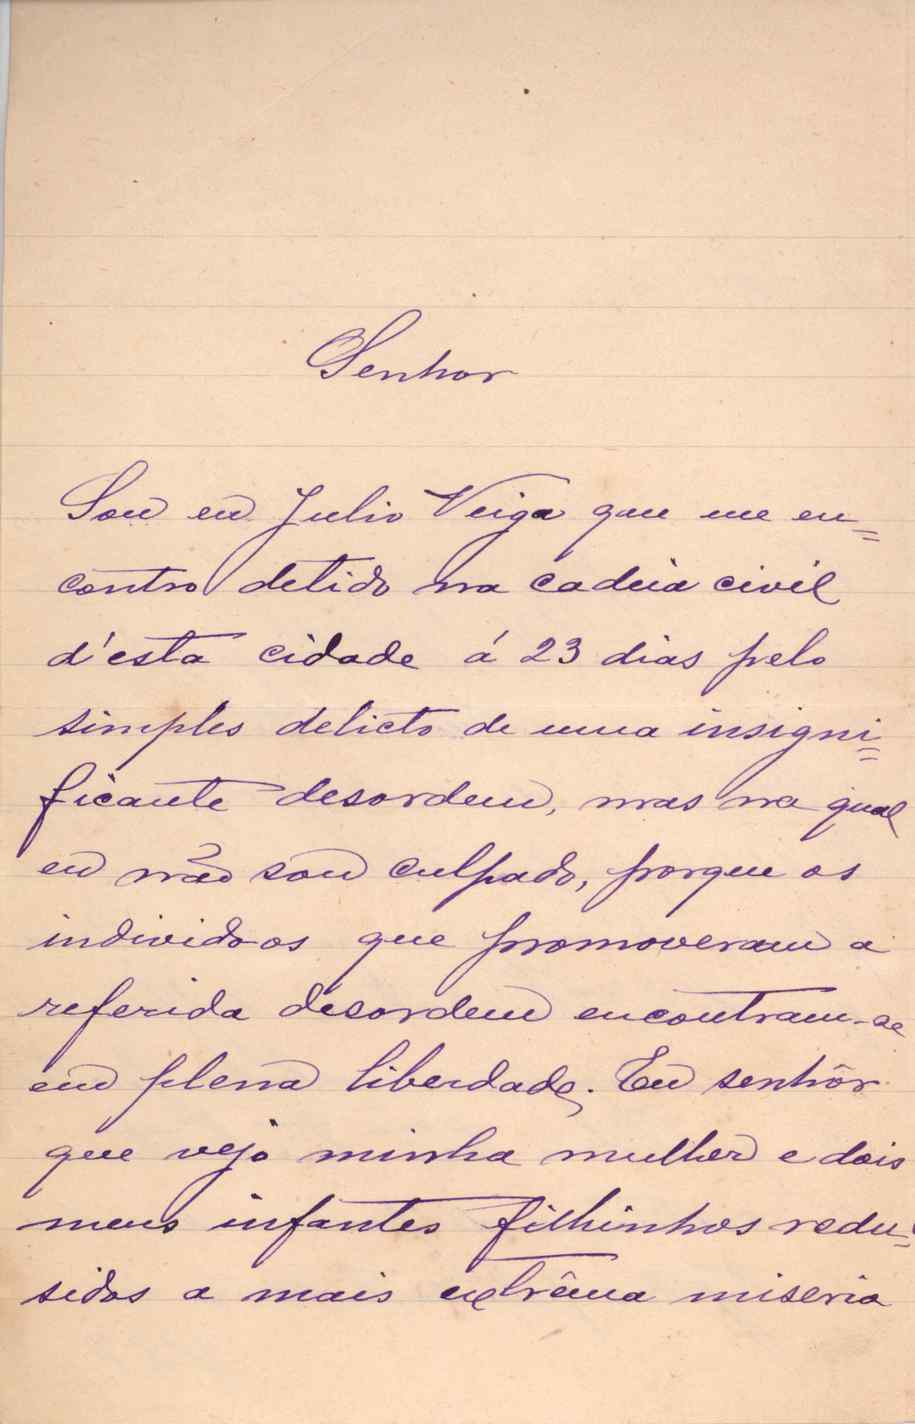 Senhor
Sou eu Julio Veiga que me en=
contro detido na cadeia civil
d'esta cidade á 23 dias pelo
simples delicto de uma insigni=
ficante desordem, mas na qual
eu não sou culpado, porque os
individos que promoveram a
referida desordem encontram-se
em plena liberdade. Eu senhôr
que vejo minha mulher e dois
meus infantes filhinhos redu=
sidos a mais extrêma miseria